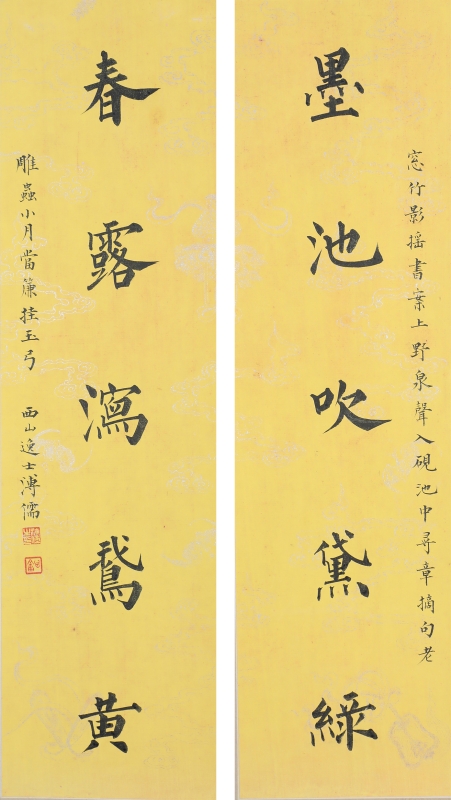 窓竹影搖書案上野泉聲入硯池中尋章摘句老
墨池吹黛綠
春露瀉鵞黃
雕蟲小月當簾挂玉弓
西山逸士溥儒